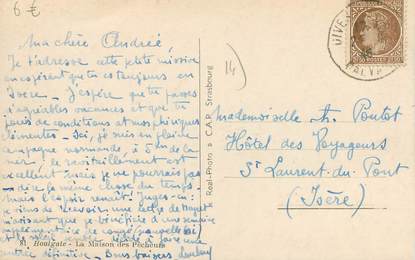 6 €
Ma chère Andrée,
Je t'adresse cette petite missive
en espérant que tu es toujours en
Isère. J'espère que tu passes
d'agréables vacances et que tu
jouis de conditions atmosphériques
clémentes - Ici, je suis en pleine
campagne normande, à 5 km de la
mer, le ravitaillement est
excellent mais je ne pourrais pas
dire la même chose du temps.
Mais l'espoir renaît! Juges-en:
je viens de recevoir une lettre de
m'avisant que je bénéficie d'une semaine
supplémentaire de congé
entrée définitive - Bons baisers
81 Houlgate - La Maison des Pêcheurs
Real-Photo C.A.P. Strasbourg
14
DIVES
CALV
Mademoiselle A. Pontot
Hôtel des Voyageurs
St Laurent du Pont
(Isère)